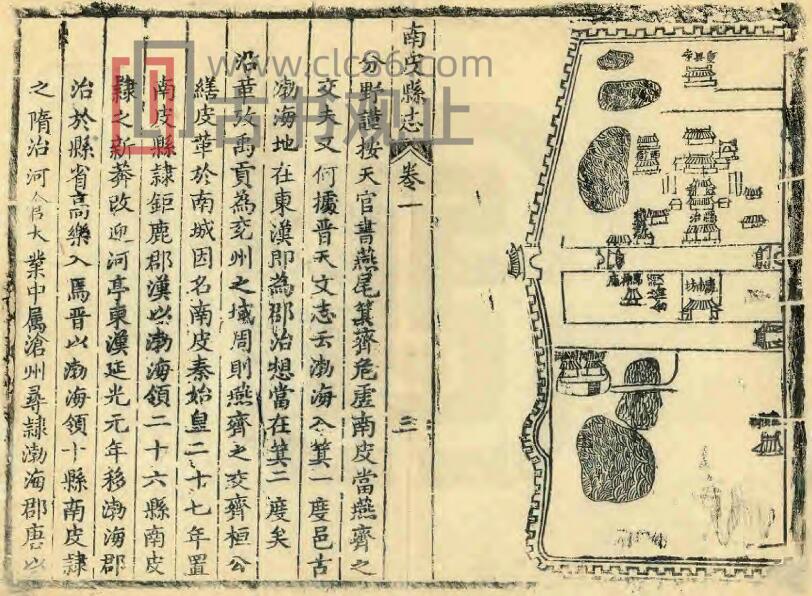 南皮縣志
卷一
三
分野謹按天官書燕尾箕齊危虛南皮當燕齊之
交夫又何據晉天文志云渤海入箕一度邑古
渤海地在東漢即為郡治想當在箕二度矣
沿革攷禹貢為兗州之域周則燕齊之交齊桓公
繕皮革於南城因名南皮秦始皇二十七年置
南皮縣隸鉅鹿郡漢以渤海領二十六縣南皮
隸之新莽改迎河亭東漢延光元年移渤海郡
治於縣省高樂入焉晉以渤海領十縣南皮隸
之隋治河 大業中属滄州尋隸渤海郡唐以
縣治
www.clc86.com
古书观止